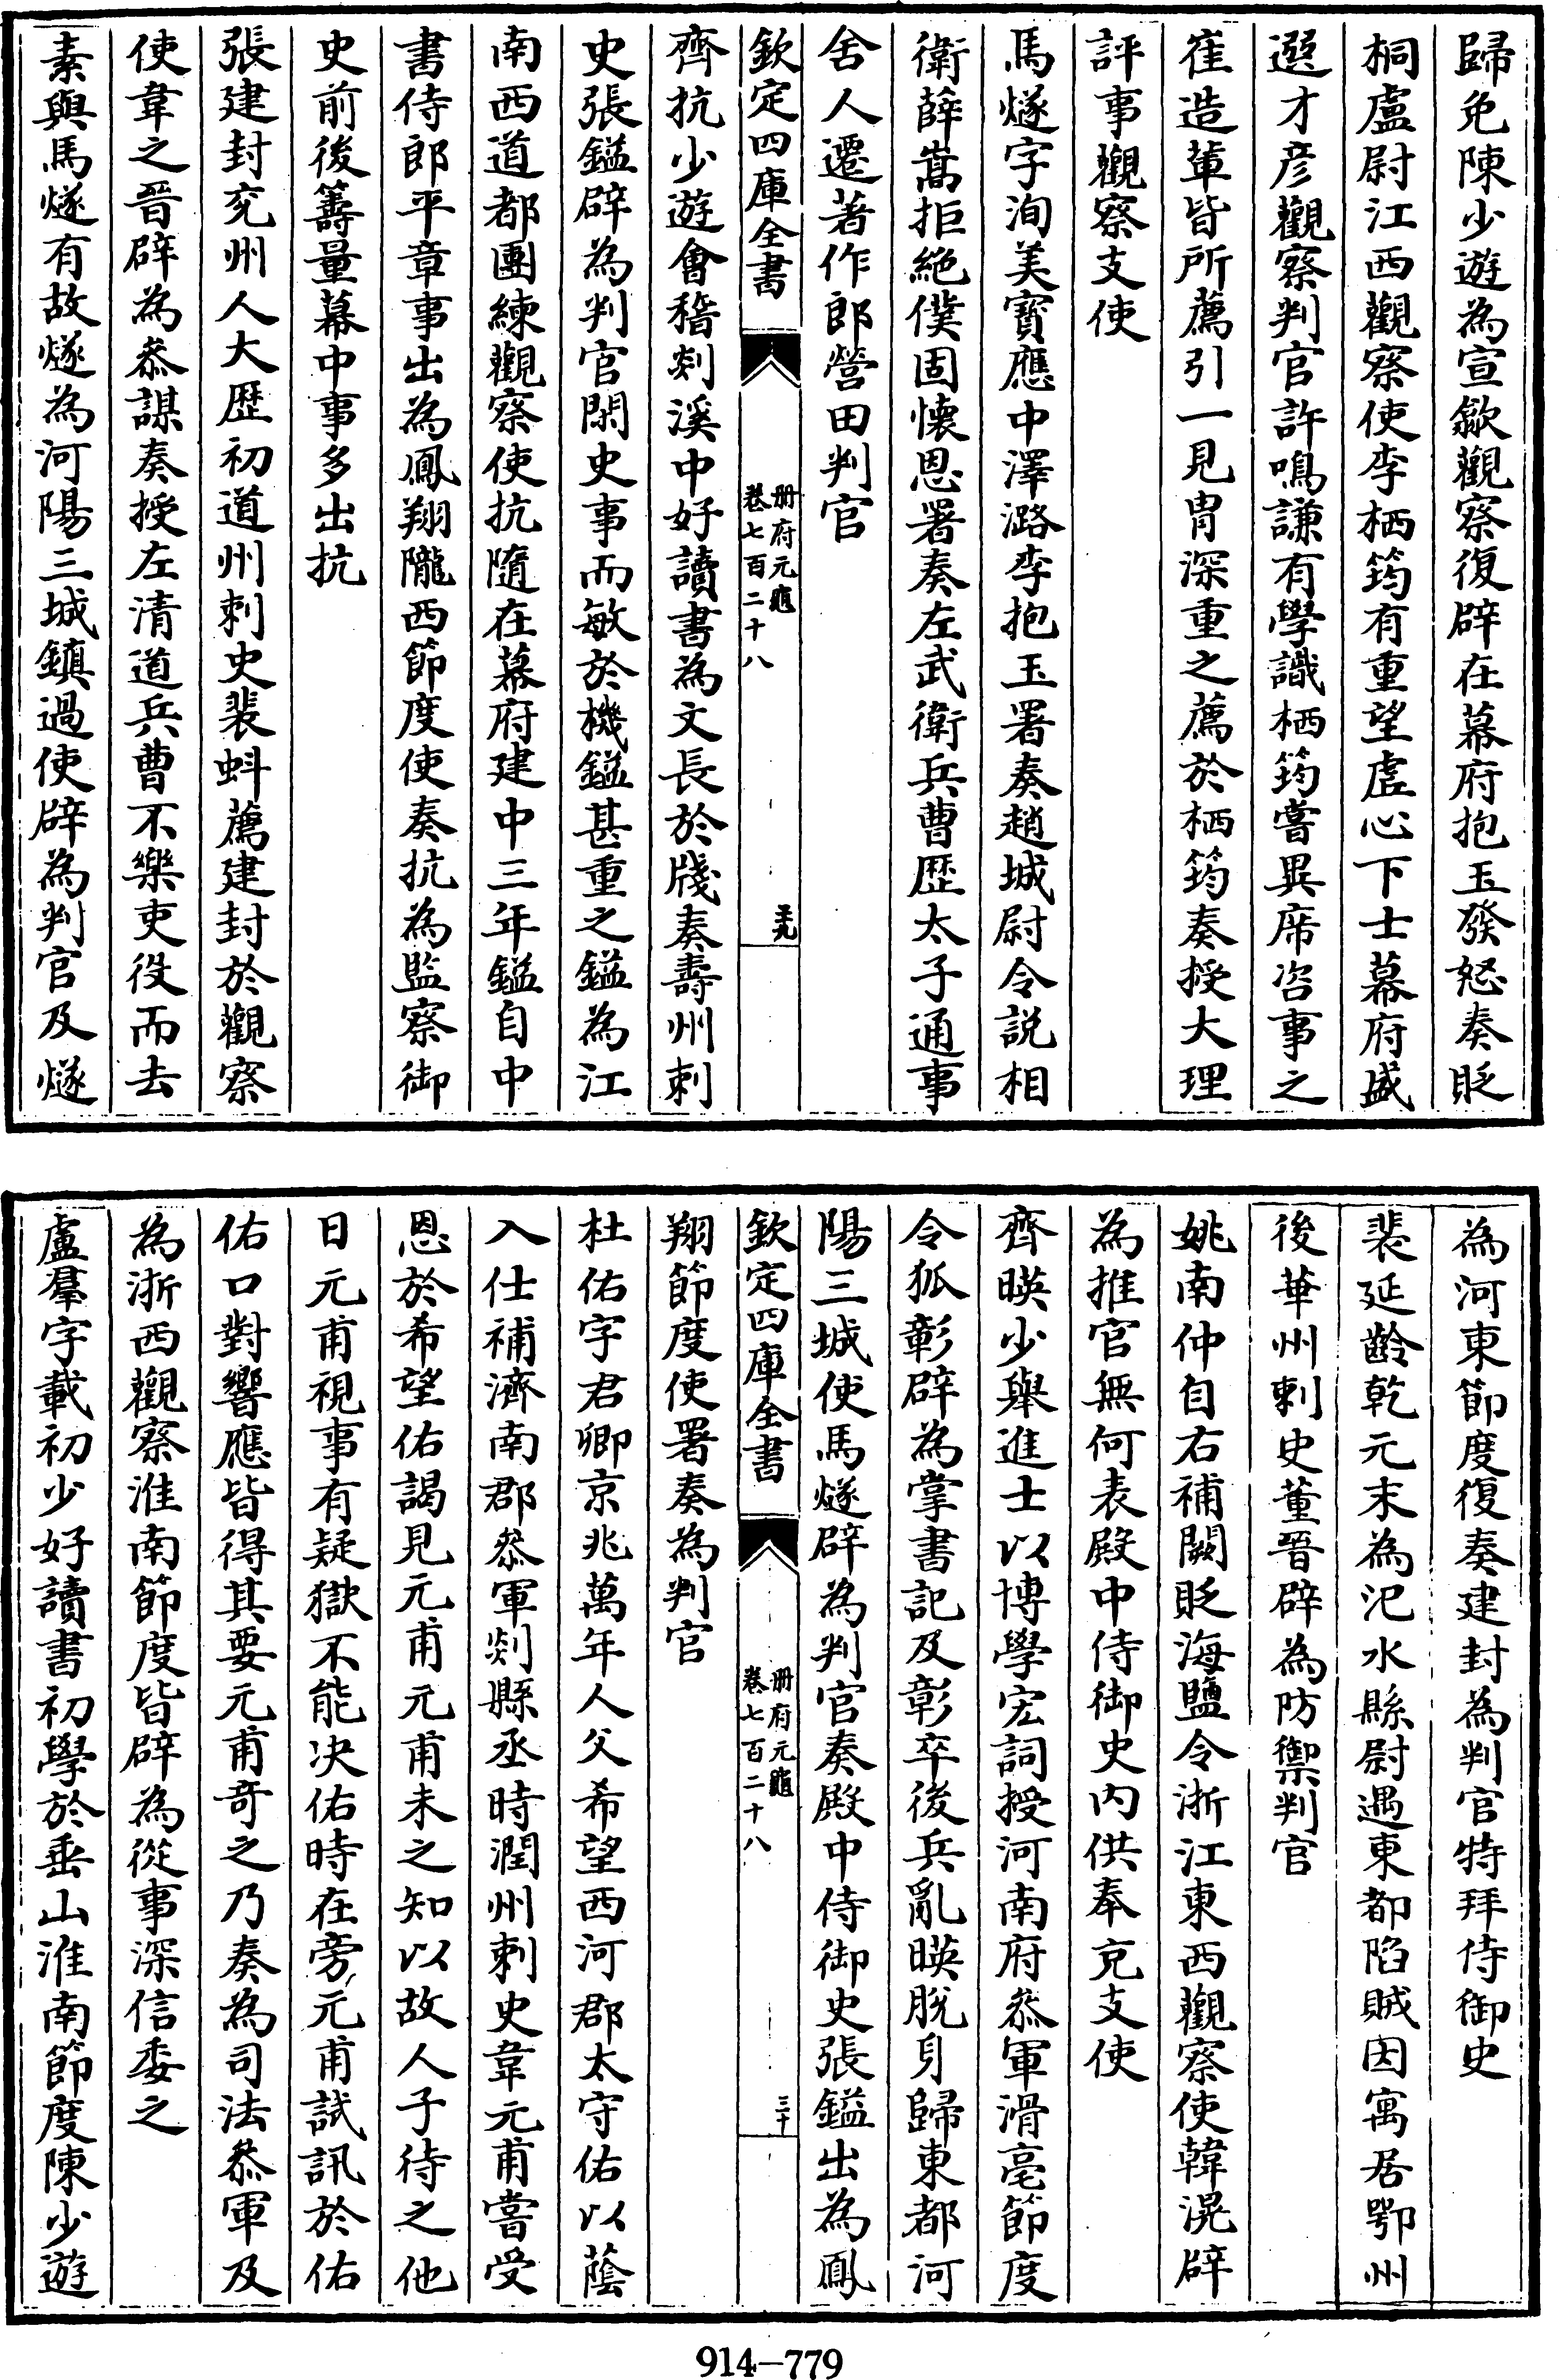 歸免陳少遊為宣歙觀察復辟在幕府抱玉發怒奏貶
桐盧尉江西觀察使李栖筠有重望虛心下士幕府盛
選才彦觀察判官許鳴謙有學識栖筠嘗異席咨事之
崔造輩皆所薦引一見胄深重之薦於栖筠奏授大理
評事觀察支使
馬燧字洵美寶應中澤潞李抱玉署奏趙城尉令説相
衛薛嵩拒絶僕固懷恩署奏左武衛兵曹歷太子通事
舍人遷著作郎營田判官
欽定四庫全書
册府元龜
卷七百二十八
二十九
齊抗少遊會稽剡溪中好讀書為文長於牋奏壽州刺
史張鎰辟為判官閑史事而敏於機鎰甚重之鎰為江
南西道都團練觀察使抗隨在幕府建中三年鎰自中
書侍郎平章事出為鳳翔隴西節度使奏抗為監察御
史前後籌量幕中事多出抗
張建封兖州人大歷初道州刺史裴虯薦建封於觀察
使韋之晋辟為叅謀奏授左清道兵曹不樂吏役而去
素與馬燧有故燧為河陽三城鎮遏使辟為判官及燧
為河東節度復奏建封為判官特拜侍御史
裴延齡乾元末為汜水縣尉遇東都陷賊因寓居鄂州
後華州刺史董晉辟為防禦判官
姚南仲自右補闕貶海鹽令浙江東西觀察使韓滉辟
為推官無何表殿中侍御史内供奉充支使
齊暎少舉進士以博學宏詞授河南府叅軍滑亳節度
令狐彰辟為掌書記及彰卒後兵亂暎脱身歸東都河
陽三城使馬燧辟為判官奏殿中侍御史張鎰出為鳳
欽定四庫全書
册府元龜
卷七百二十八
三十
翔節度使署奏為判官
杜佑字君卿京兆萬年人父希望西河郡太守佑以蔭
入仕補濟南郡叅軍剡縣丞時潤州刺史韋元甫嘗受
恩於希望佑謁見元甫元甫未之知以故人子待之他
日元甫視事有疑獄不能决佑時在旁元甫試訊於佑
佑口對響應皆得其要元甫奇之乃奏為司法叅軍及
為浙西觀察淮南節度皆辟為從事深信委之
盧羣字載初少好讀書初學於垂山淮南節度陳少遊
914-779